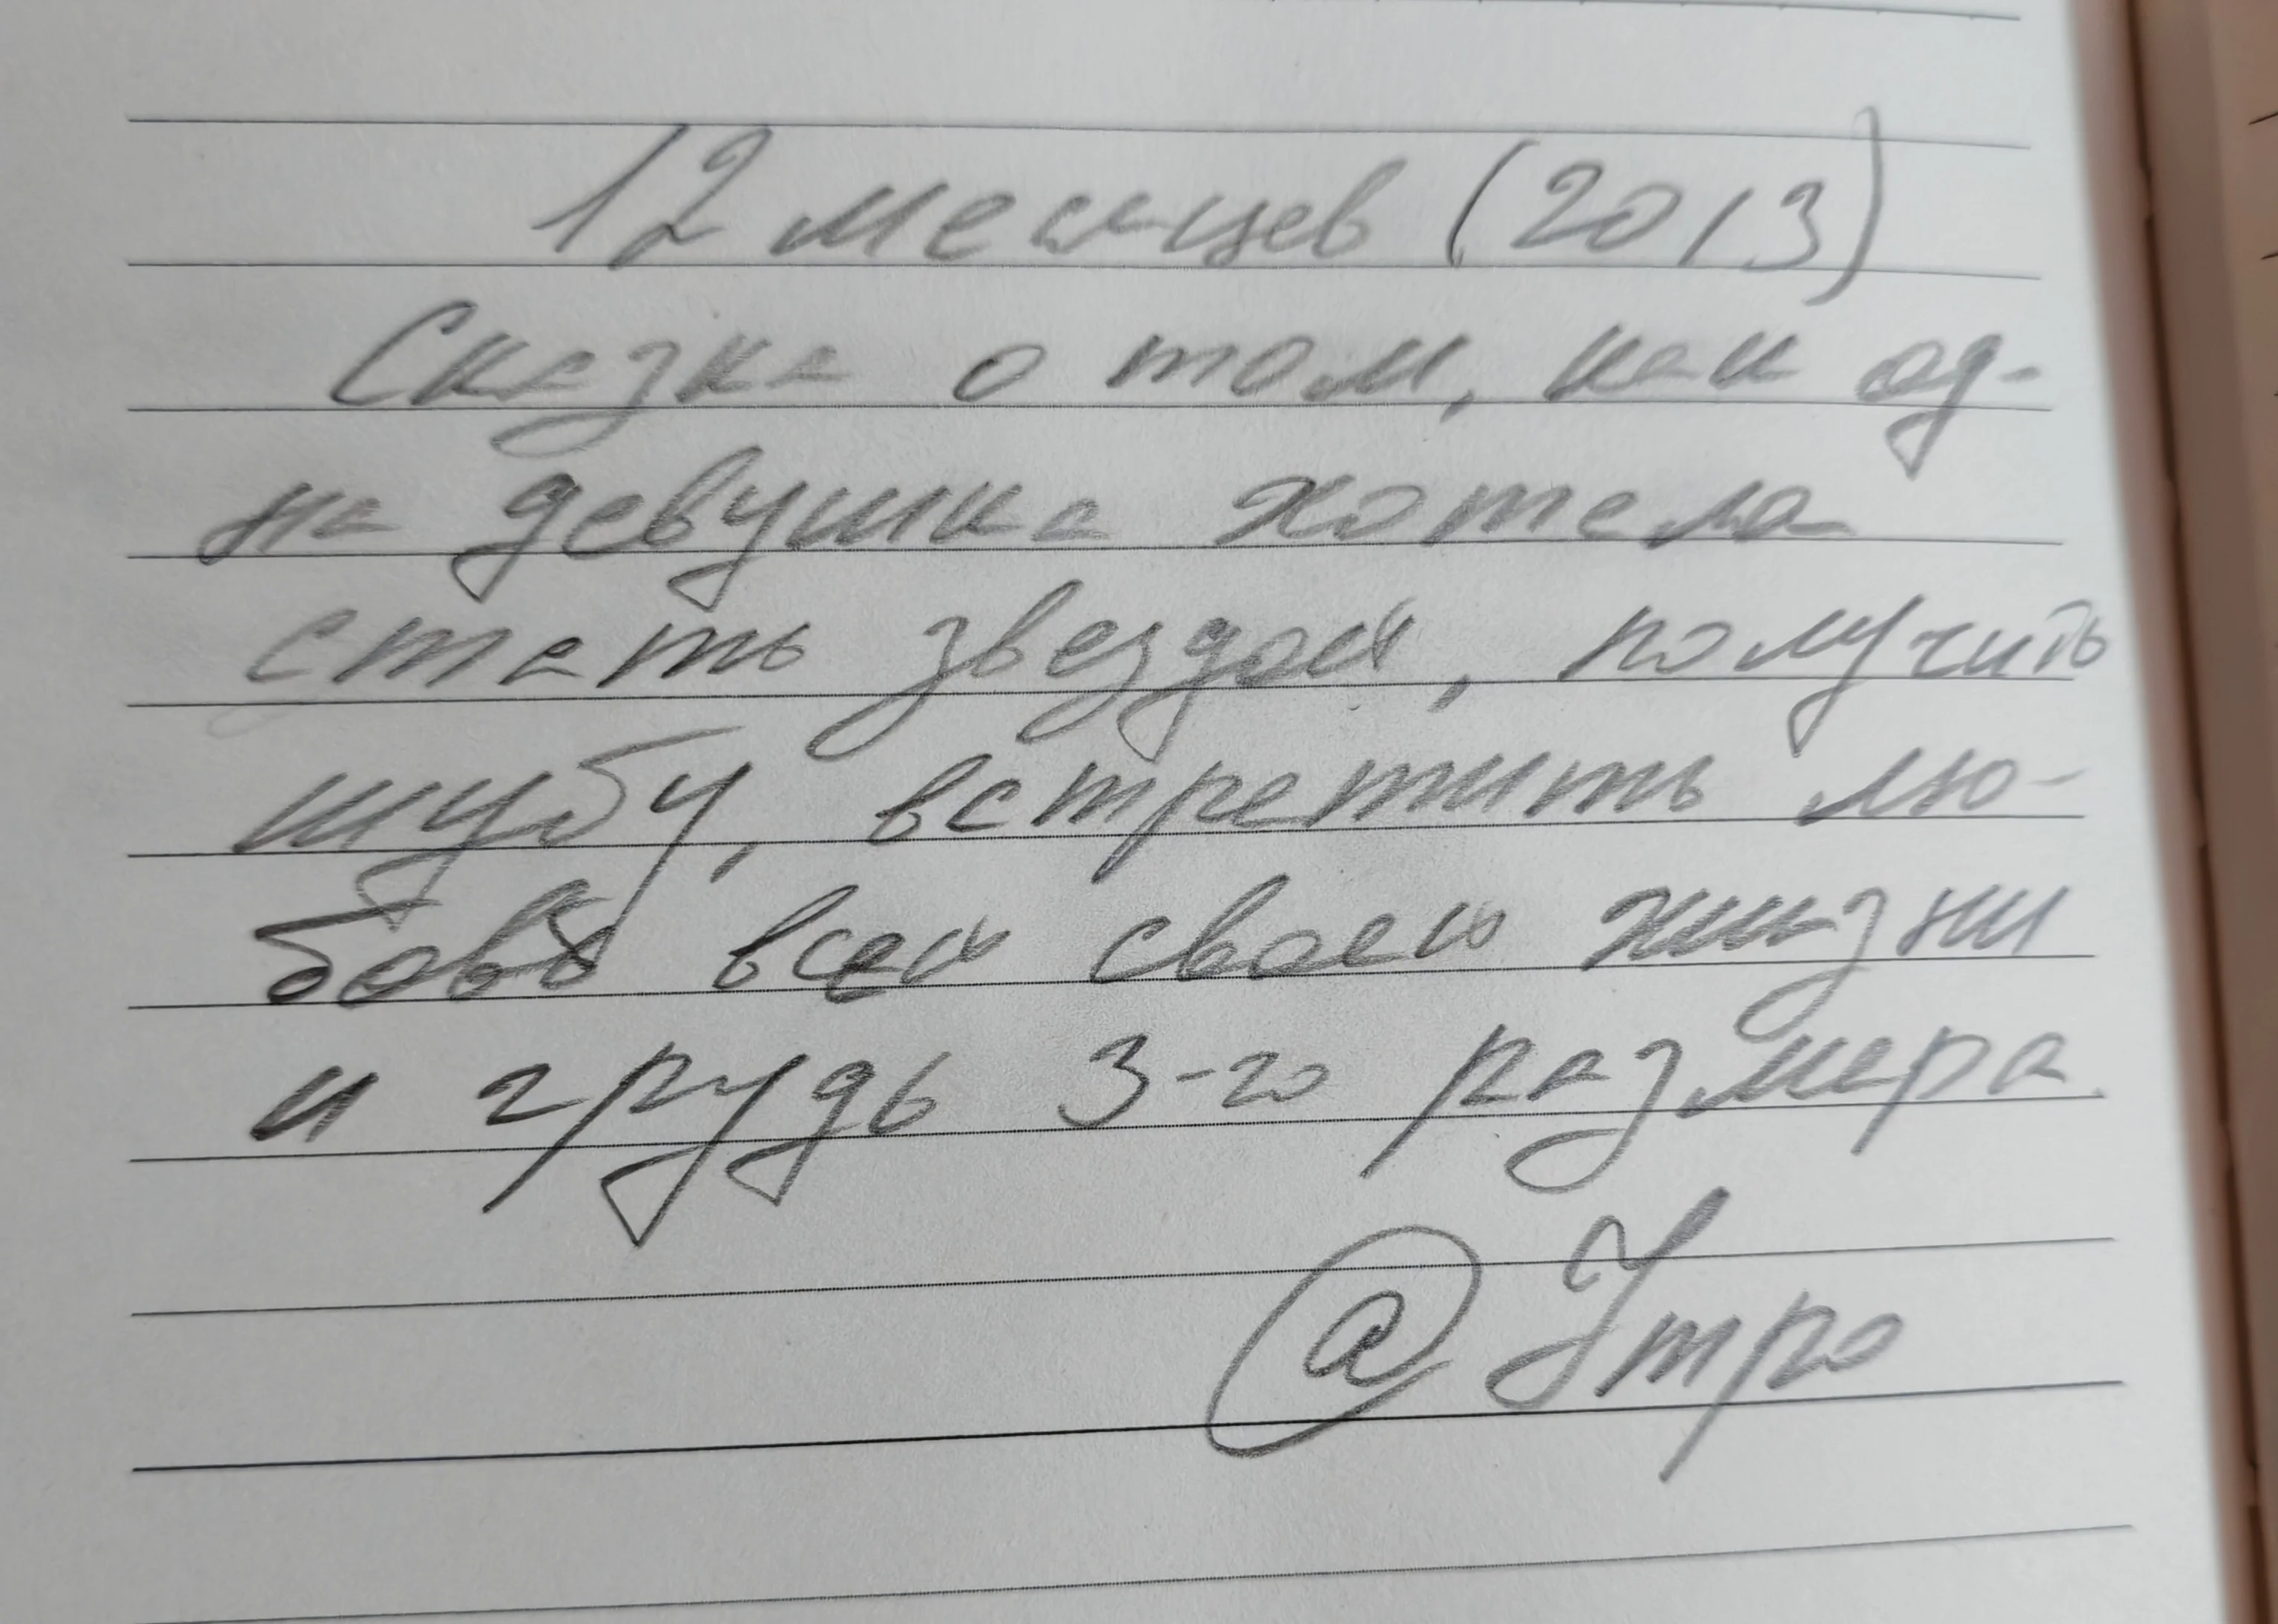 12 месяцев (2013)
Сказка о том, как од-
на девушка хотела
стать звездой, получить
шубу, встретить лю-
бовь всей своей жизни
и грудь 3-го размера.
@ Утро